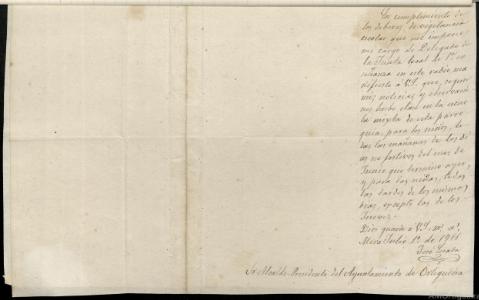 En cumplimiento de
los deberes de vigilancia
escolar que me impone
mi cargo de Delegado de
la Junta local de 1ª en
señanza en este radio, ma
nifiesto á V.S. que, segun
mis noticias y observacio
nes hubo clase en la escue
la mixta de esta parro
quia, para los niños, to
das las mañanas de los di
as no festivos del mes de
Junio que terminó ayer,
y para las niñas, todas
las tardes de los mismos
dias, excepto las de los
Jueves.-
Dios guarde á V.S. m. a.
Mera Julio 1º de 1911
José
Sr Alcalde-Presidente del Ayuntamiento de Ortigueira